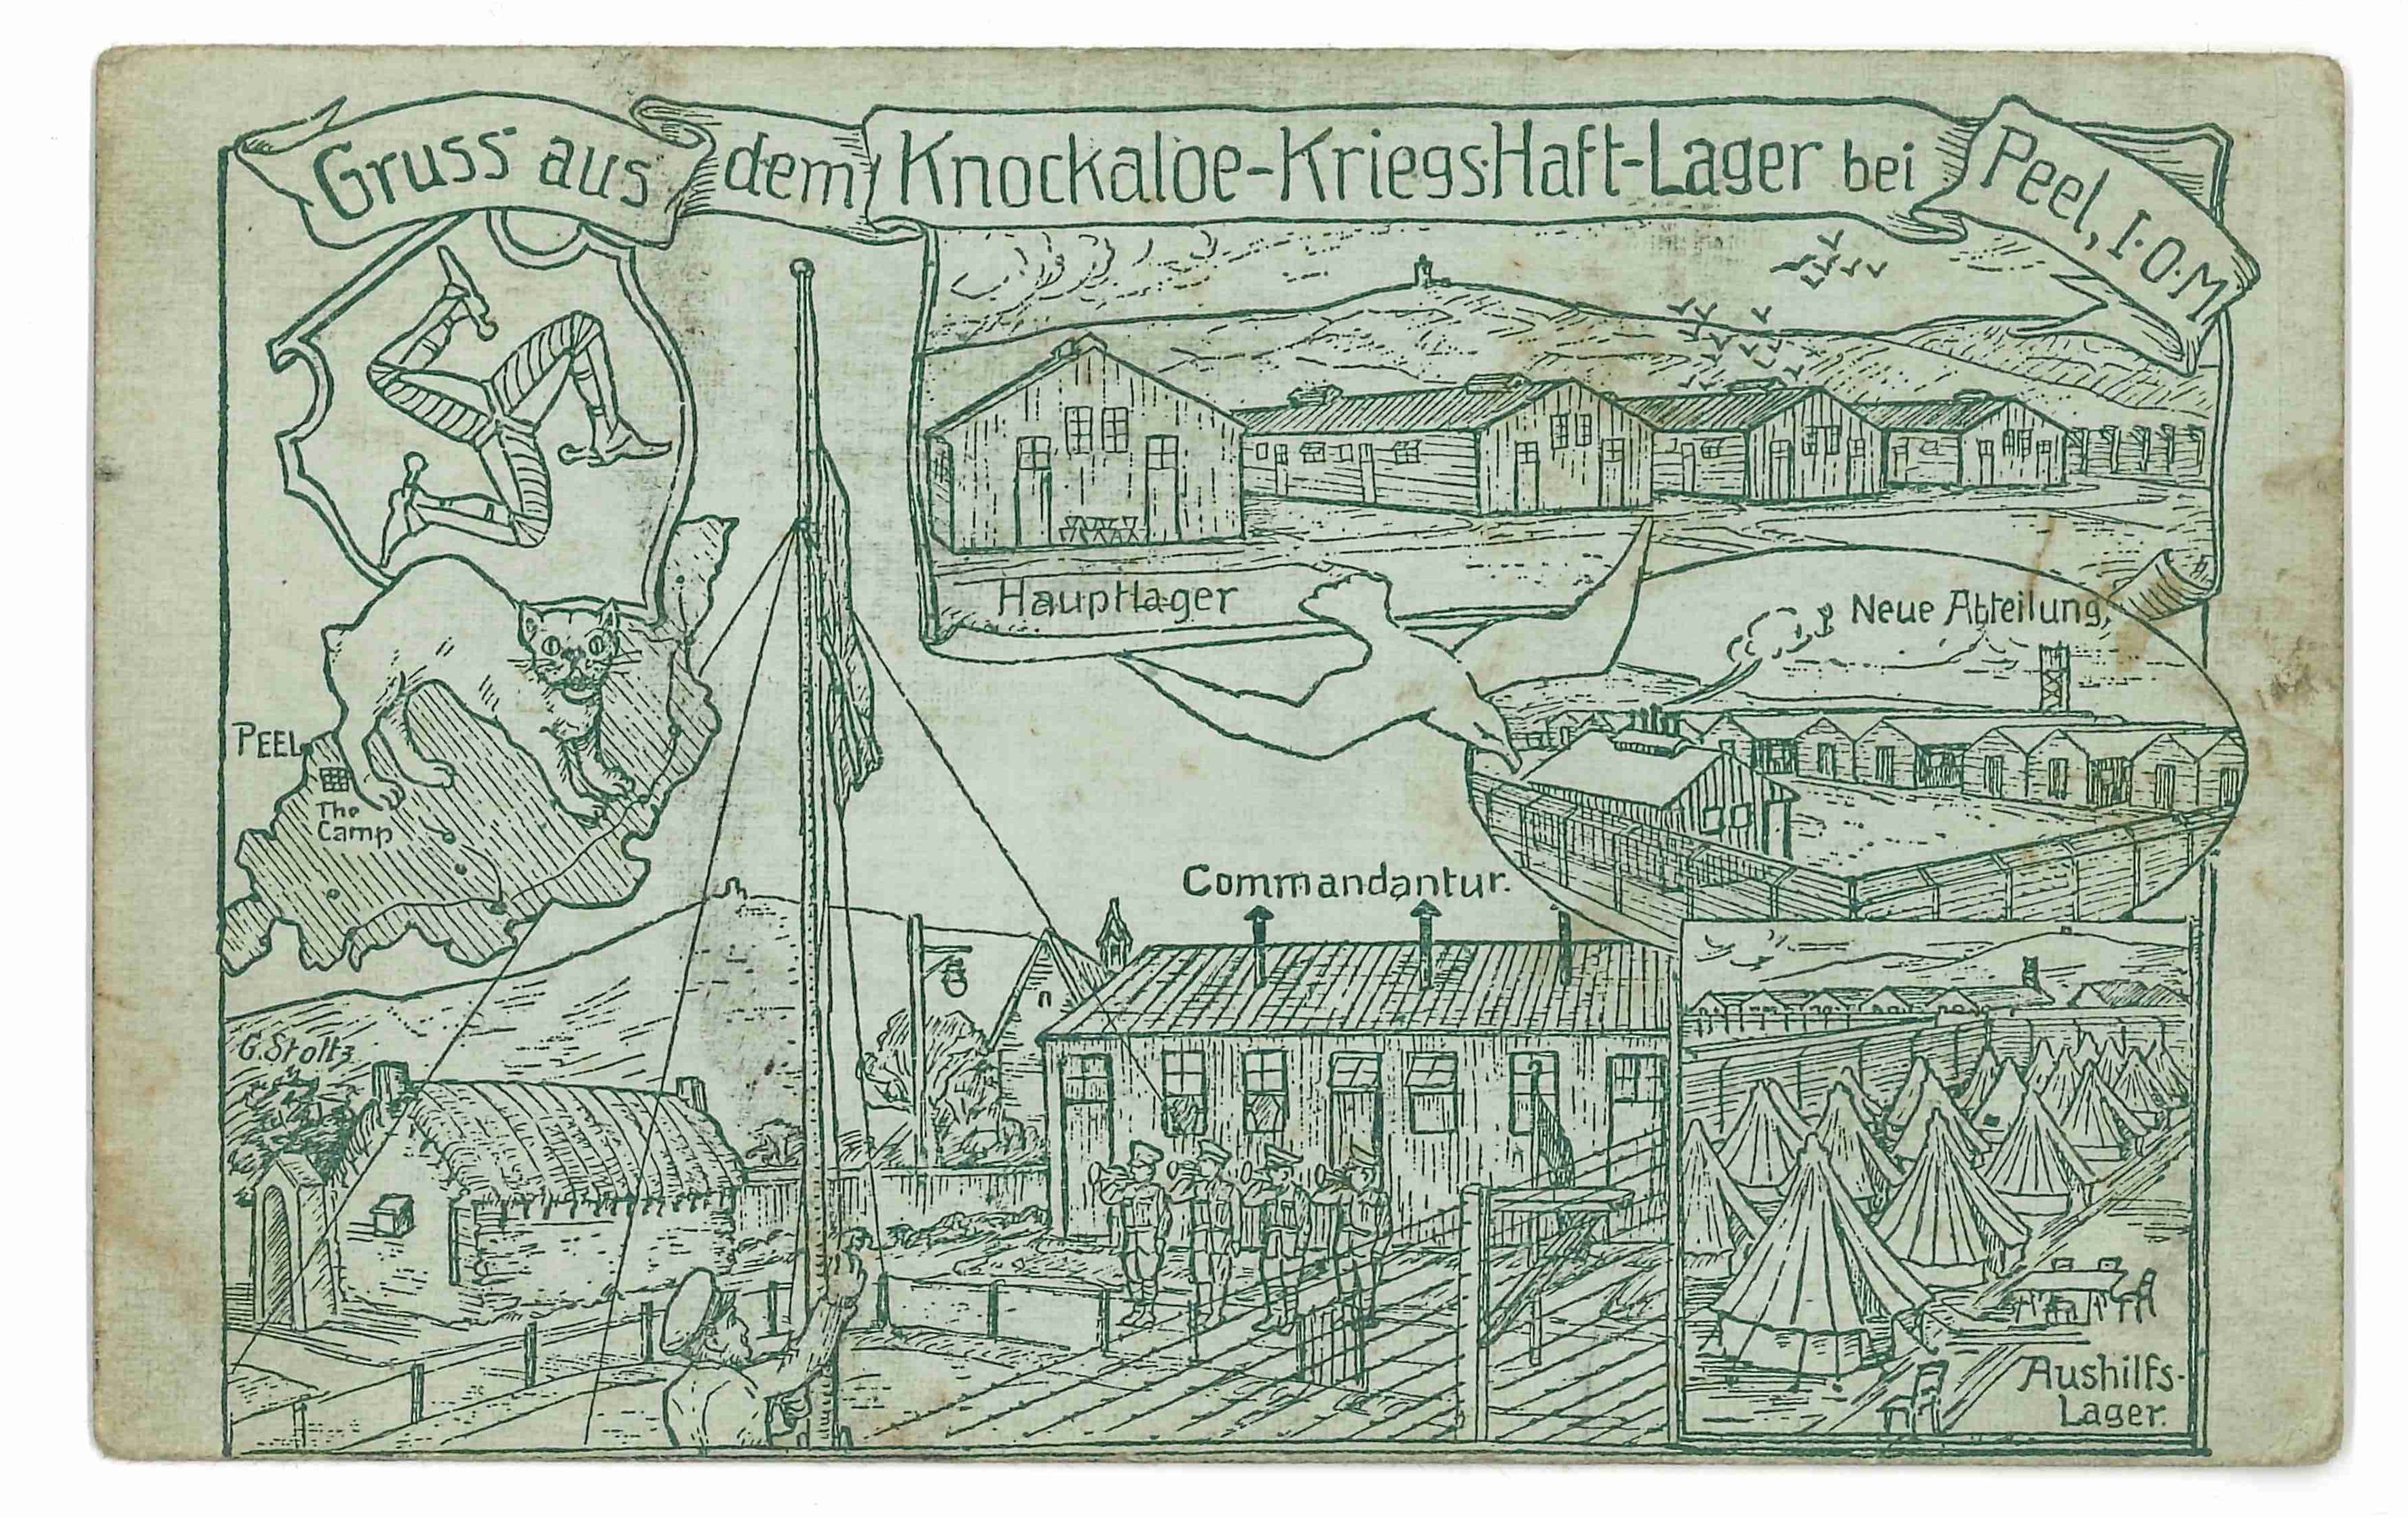 Gruss aus dem Knockaloe-KriegsHaft-Lager bei Peel, I.O.M
Hauptlager
Neue Abteilung,
PEEL
The
Camp
Commandantur.
G. Stoltz
Aushilfs-
Lager.